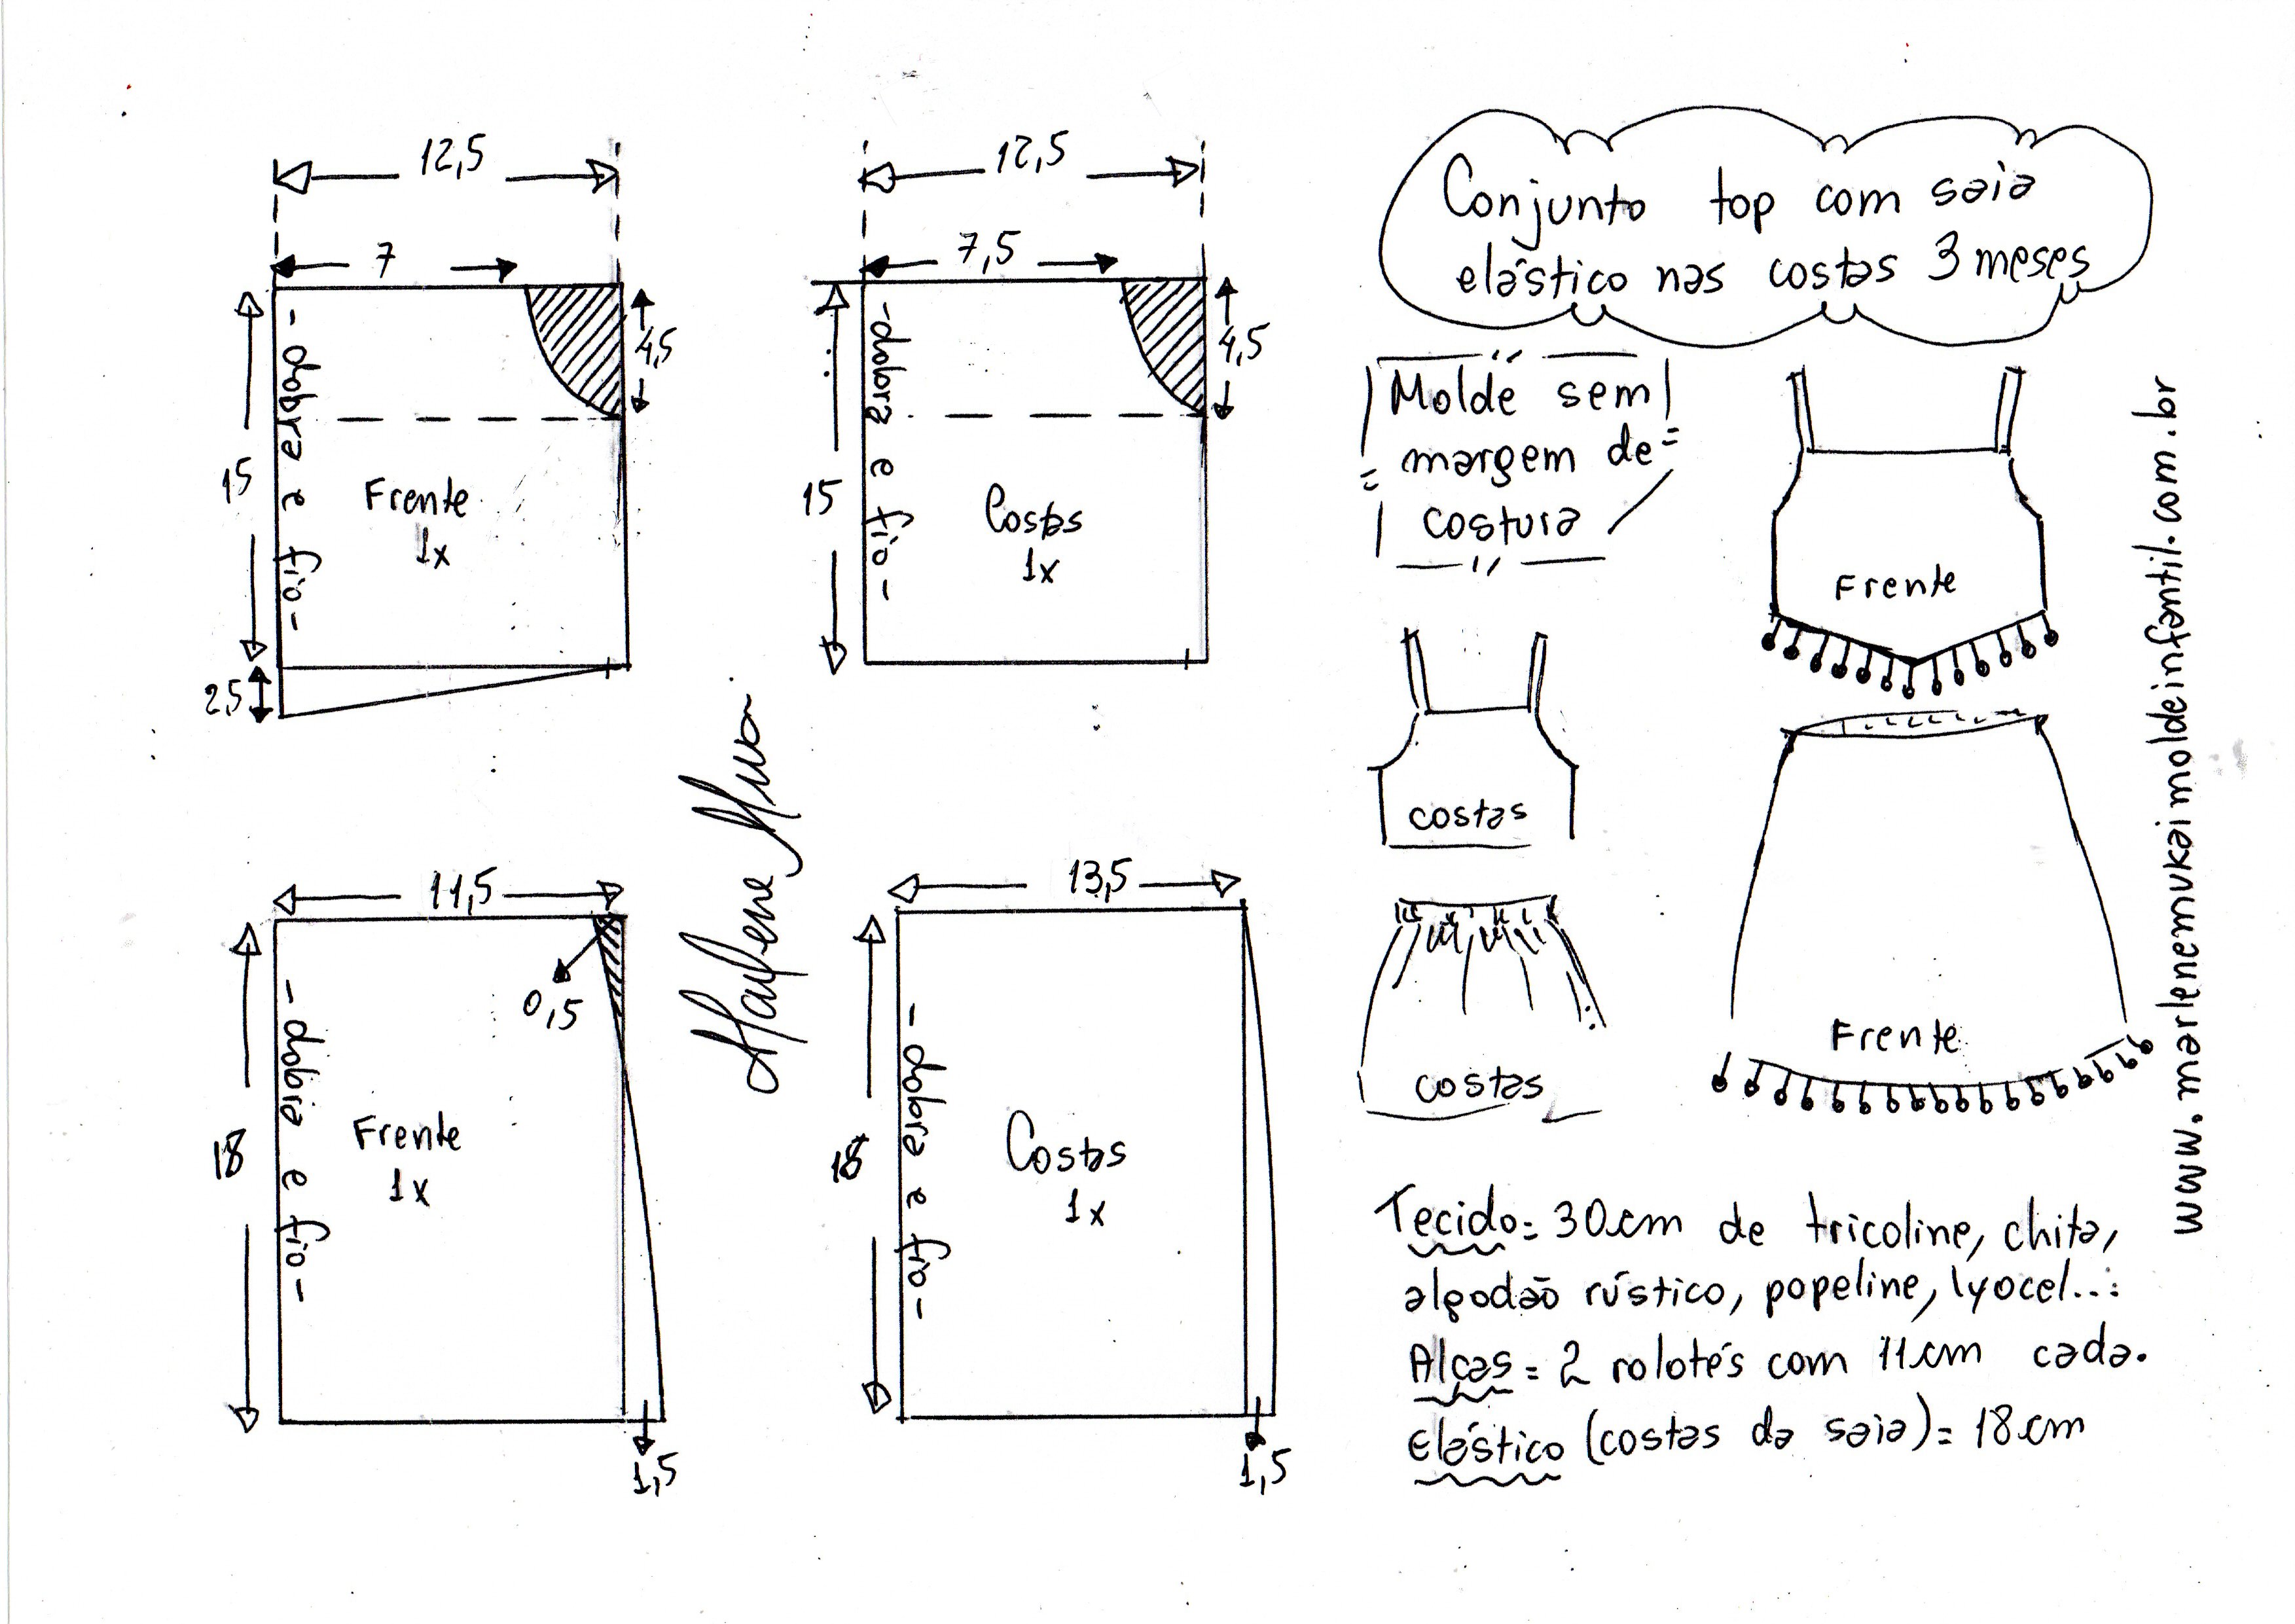 12,5
7
4,5
15
- dobra e fio -
Frente
1x
2,5
12,5
7,5
4,5
15
- dobra e fio -
Costas
1x
11,5
0,5
18
- dobra e fio -
Frente
1x
1,5
13,5
18
- dobra e fio -
Costas
1x
1,5
Marlene Mukai
Conjunto top com saia
elástico nas costas 3 meses
Molde sem
margem de
costura
Frente
costas
Frente
costas
www.marlenemukaimoldeinfantil.com.br
Tecido = 30cm de tricoline, chita,
algodão rústico, popeline, lyocel...
Alças = 2 rolotés com 11cm cada.
Elástico (costas da saia) = 18cm